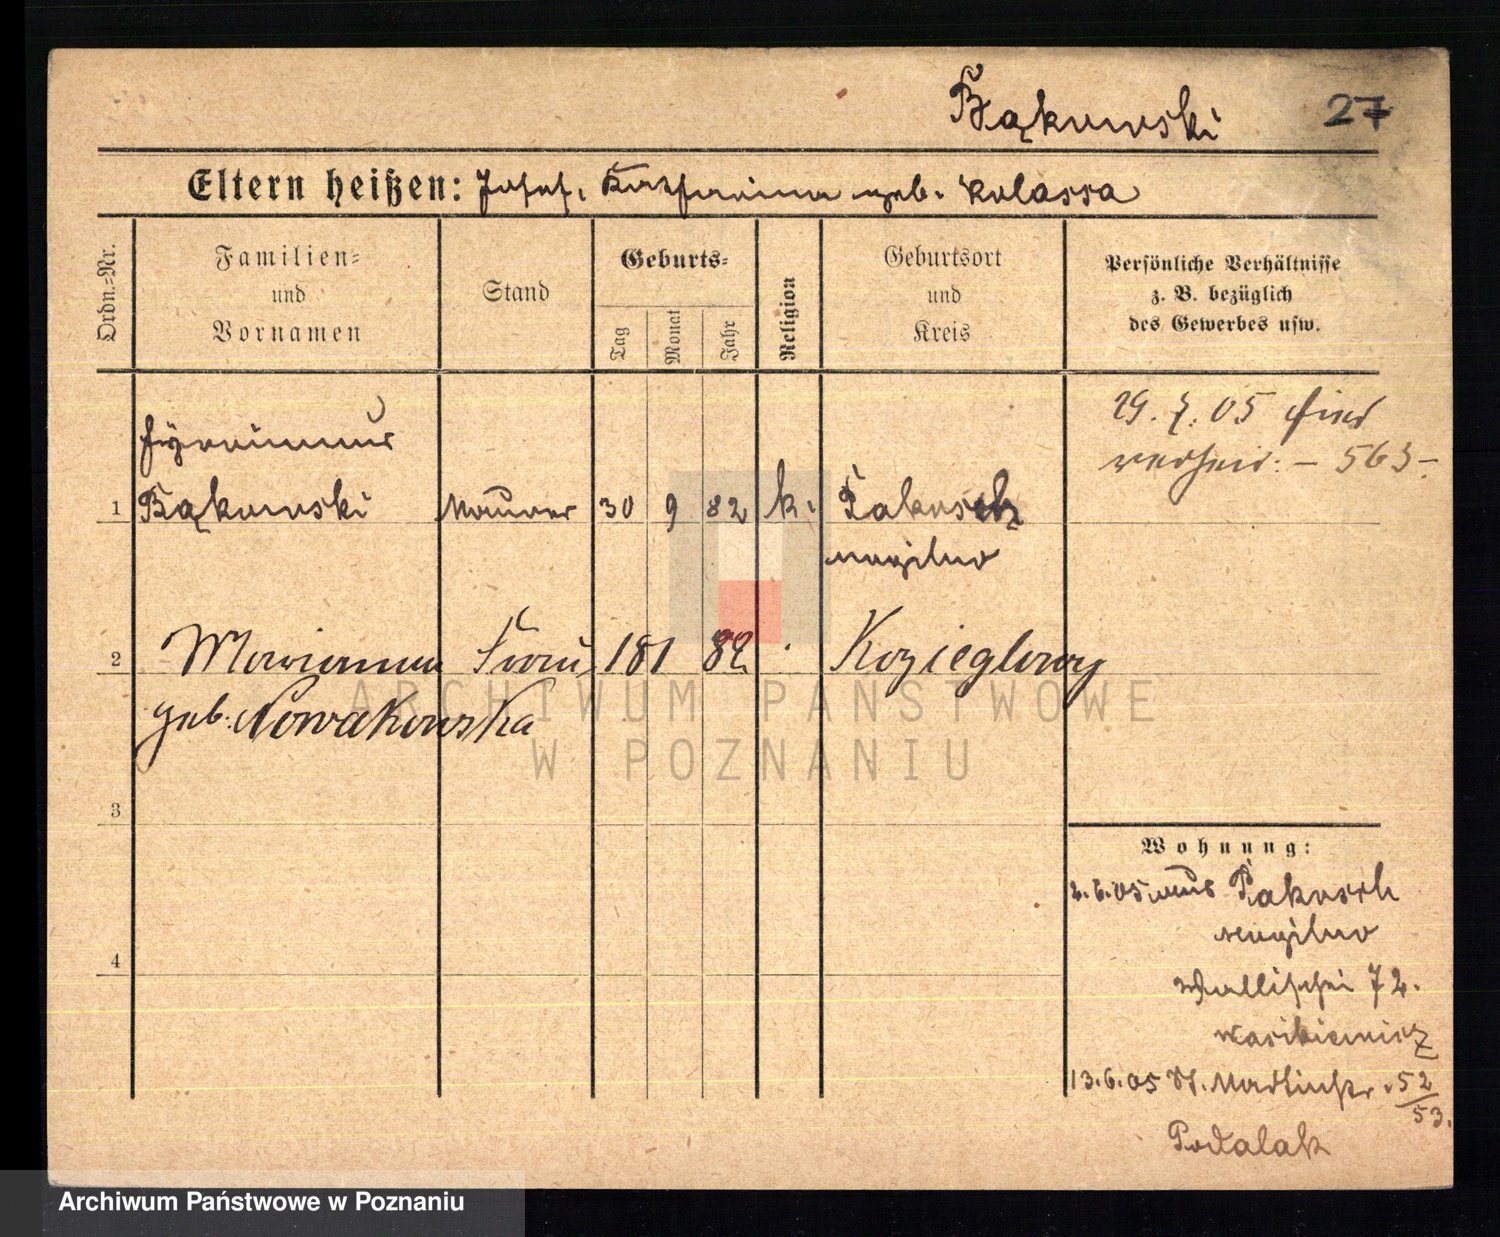 Bąkowski 27
Eltern heißen: Josef, Katharina geb. Kolassa
Ordn.-Nr.
Familien-
und
Vornamen
Stand
Geburts-
Tag
Monat
Jahr
Religion
Geburtsort
und
Kreis
Persönliche Verhältnisse
z. B. bezüglich
des Gewerbes usw.
29. 7. 05 hier
verheir: – 563 –
1 Bąkowski Maurer 30 9 82 k. Pakosch
Mogilno
2 Marianna Frau 18 1 82 Kozieglowy
geb. Nowakowska
3
4
Wohnung:
2.6.05 aus Pakosch
Mogilno
Wallischei 72.
13.6.05 St. Martinstr. 52/53.
Podalak
ARCHIWUM PAŃSTWOWE
W POZNANIU
Archiwum Państwowe w Poznaniu